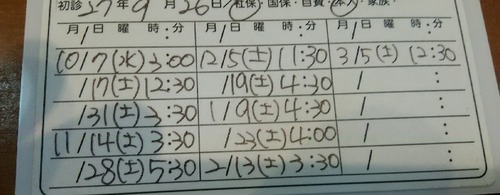 初診27年9月26日/社保・国保・自費/本人・家族・
月/日 曜 時:分 月/日 曜 時:分 月/日 曜 時:分
10/7(水)3:00 12/5(土)11:30 3/5(土)12:30
/17(土)12:30 /19(土)4:30 / :
/31(土)3:30 1/9(土)4:30 / :
11/14(土)3:30 /23(土)4:00 / :
/28(土)5:30 2/13(土)3:30 / :